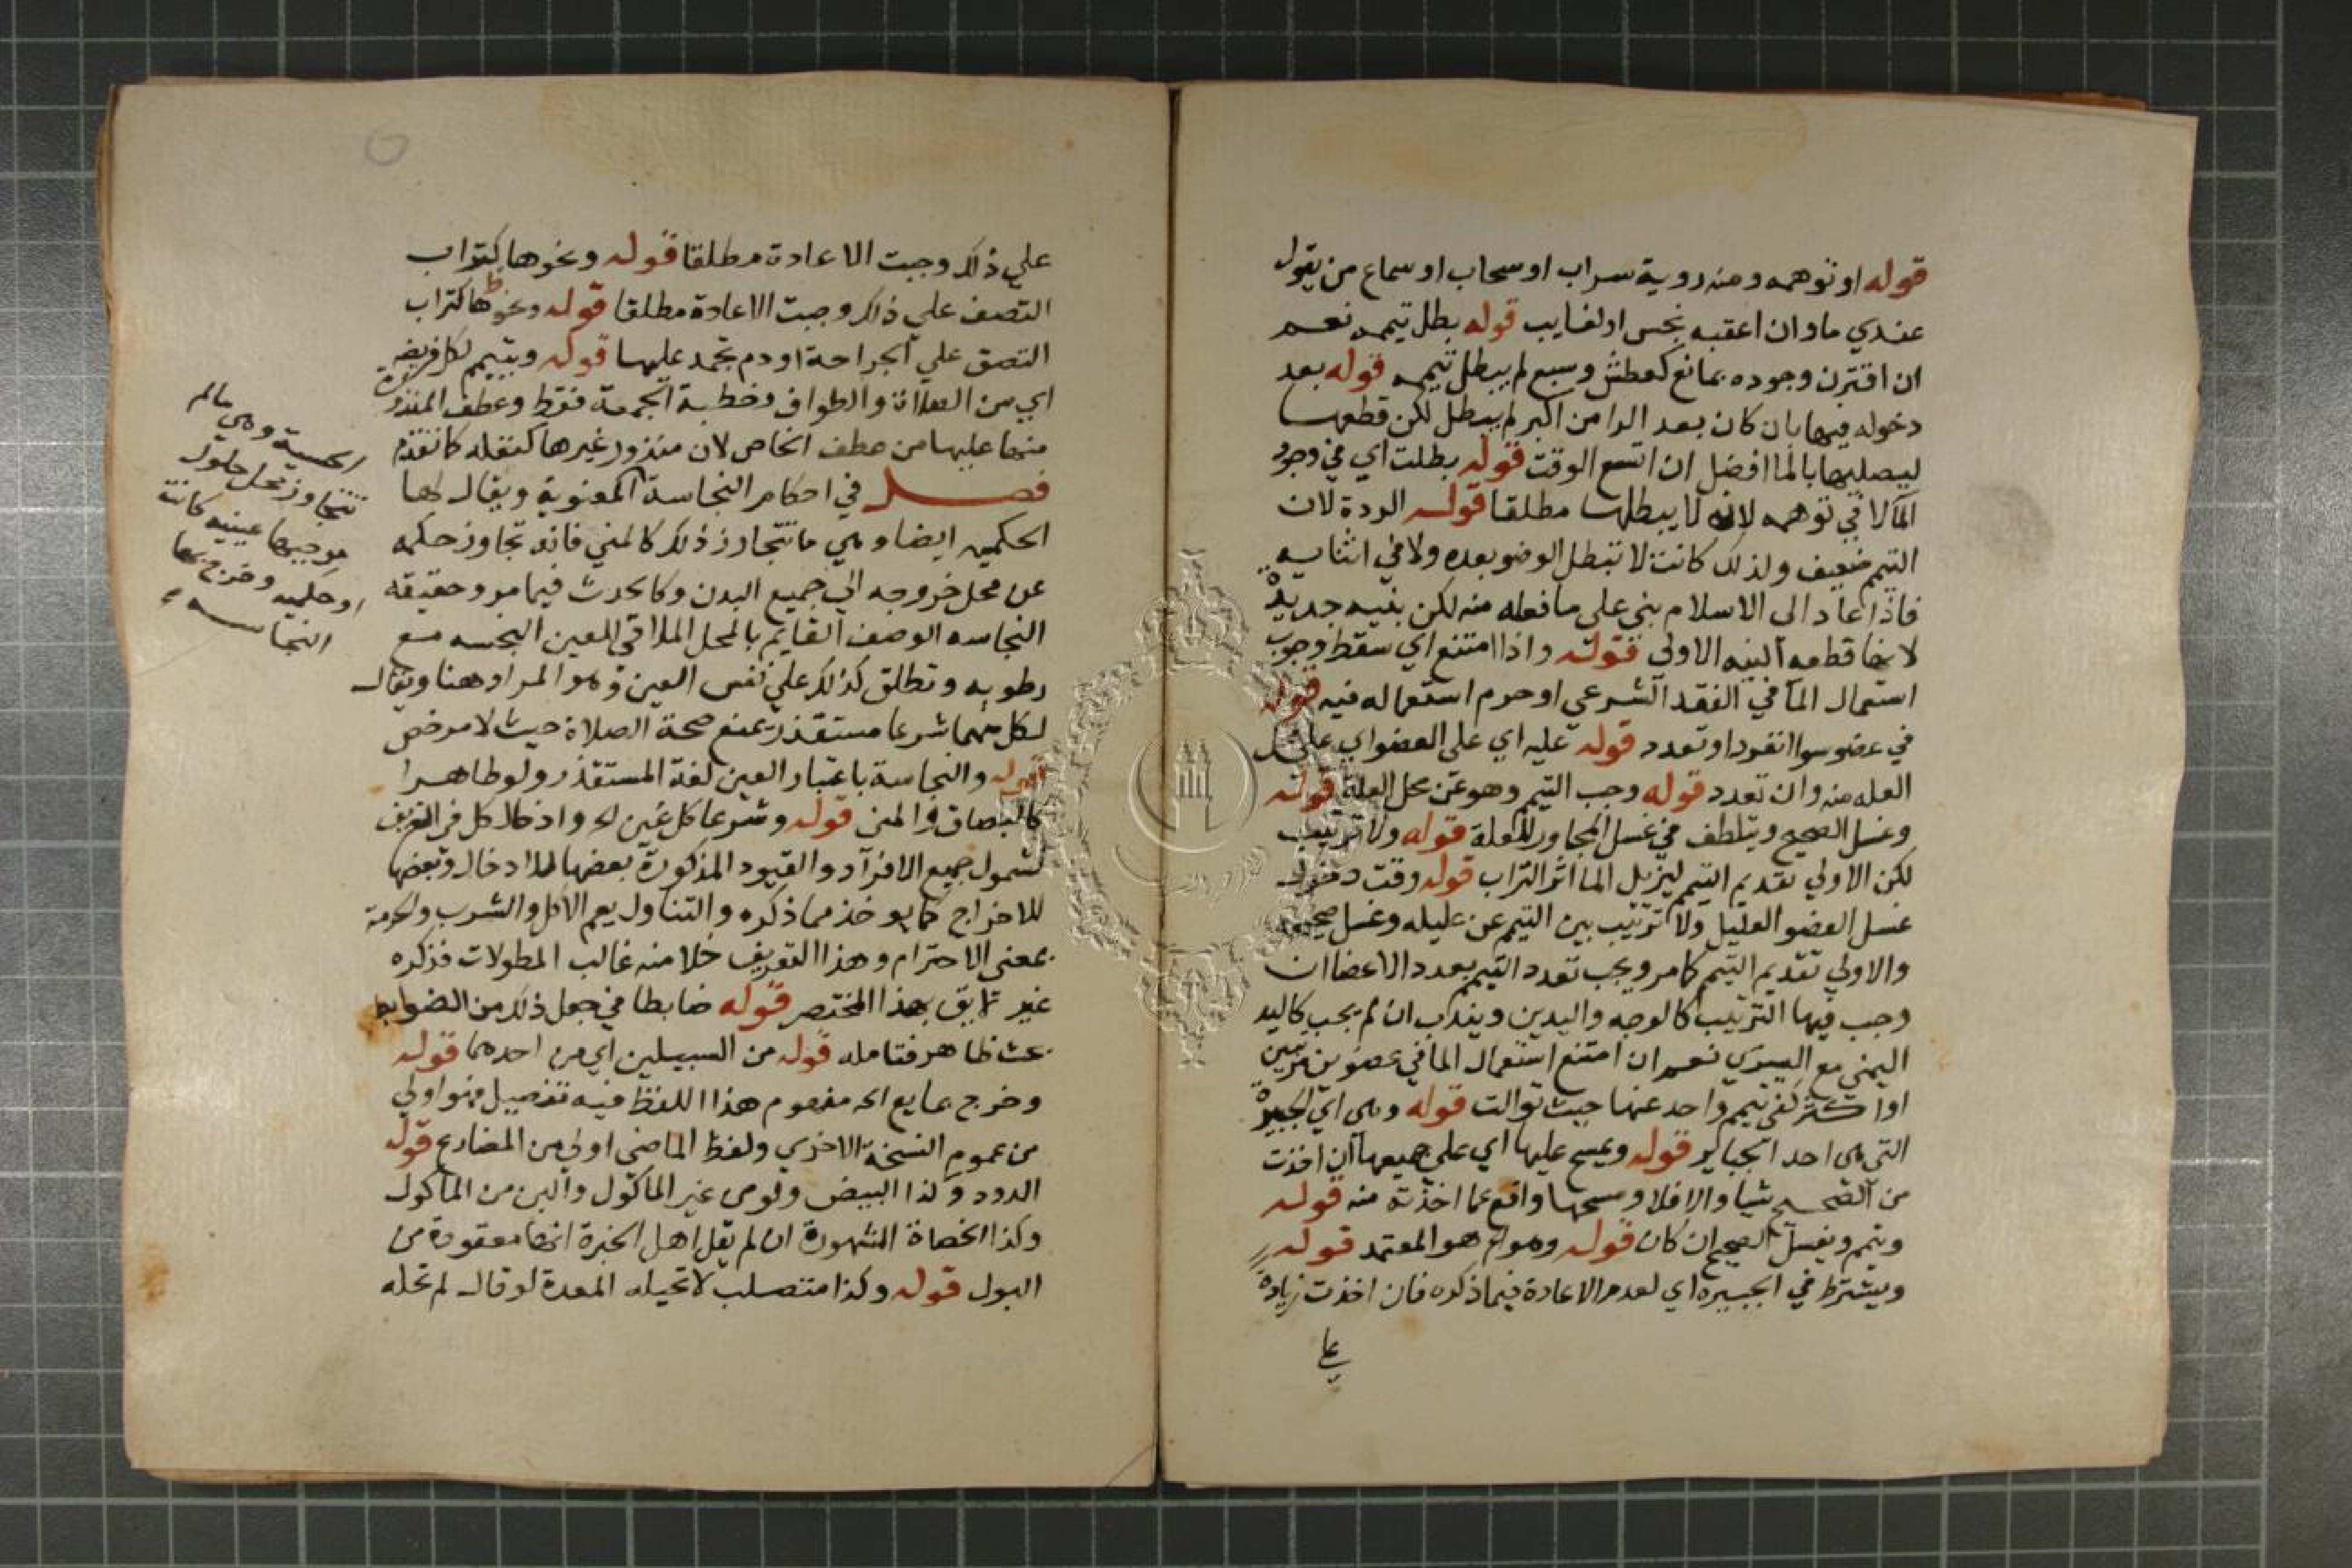 قوله او توهمه ومنه روية سراب او سحاب او سماع من يقول
عندي ماء وان اعقبه بنجس او لغايب قوله بطل تيممه نعم
ان اقترن وجوده بمانع كعطش وسبع لم يبطل تيممه قوله بعد
دخوله فيها بان كان بعد الرا من اكبر لم يبطل لكن قطعها
ليصليها بالما افضل ان اتسع الوقت قوله بطلت اي في وجود
الما لا في توهمه لانه لا يبطلها مطلقا قوله الردة لان
التيمم ضعيف ولذلك كانت لا تبطل الوضو بعده ولا في اثنايه
فاذا عاد الى الاسلام بنى على ما فعله منه لكن بنيه جديدة
لانها قطعه النيه الاولى قوله واذا امتنع اي سقط وجوب
استعمال الما في الفقد الشرعي او حرم استعماله فيه قوله
في عضو سوا انفرد او تعدد قوله عليه اي على العضو اي على محل
العله منه وان تعدد قوله وجب التيمم وهو عن محل العلة قوله
وغسل الصحيح ويتلطف في غسل المجاور للعلة قوله ولا ترتيب
لكن الاولي تقديم التيمم ليزيل الما اثر التراب قوله وقت دخول
غسل العضو العليل ولا ترتيب بين التيمم عن عليله وغسل صحيحه
والاولي تقديم التيمم كما مر ويجب تعدد التيمم بعدد الاعضا ان
وجب فيها الترتيب كالوجه واليدين ويندب ان لم يجب كاليد
اليمنى مع اليسري نعم ان امتنع استعمال الما في عضوين مرتبين
او اكثر كفى تيمم واحد عنها حيث توالت قوله وهى اي الجبيرة
التي هى احد الجباير قوله ويمسح عليها اي على جميعها ان اخذت
من الصحيح شيا والا فلا ومسحها واقع عما اخذته منه قوله
ويتمم ويغسل الصحيح ان كان قوله وهو هو المعتمد قوله
ويشترط في الجبيره اي لعدم الاعادة فيما ذكره فان اخذت زيادة
علي
علي ذلك وجبت الاعادة مطلقا قوله ونحوها كتراب
التصف علي ذلك وجبت الاعادة مطلقا قوله ونحوها كتراب
التصق علي الجراحة او دم تجمد عليها قوله ويتيمم لكل فريضه
اي من الصلاة والطواف وخطبة الجمعة فقط وعطف المنذورة
منها عليها من عطف الخاص لان منذور غيرها كنفله كما تقدم
فصل في احكام النجاسة المعنوية ويقال لها
الحكميه ايضا وهي ما تتجاوز ذلك كالمني فانه تجاوز حكمه
عن محل خروجه الي جميع البدن وكالحدث فيما مر وحقيقه
النجاسه الوصف القايم بالمحل الملاقي للعين النجسه مع
رطوبه وتطلق كذلك علي نفس العين وهو المراد هنا ويقال
لكل منهما شرعا مستقذر يمنع صحة الصلاة حيث لا مرخص
قوله والنجاسة باعتبار العين لغة المستقذر ولو طاهرا
كالبصاق والمنى قوله وشرعا كل عين الخ وادخال كل في التعريف
لشمول جميع الافراد والقيود المذكورة بعضها للادخال وبعضها
للاخراج كما يوخذ مما ذكره والتناول يعم الاكل والشرب والحرمة
بمعنى الاحترام وهذا التعريف خلا منه غالب المطولات فذكره
غير لايق بهذا المختصر قوله ضابطا في جعل ذلك من الضوابط
بحث ظاهر فتامله قوله من السبيلين اي من احدهما قوله
وخرج بمايع الخ مفهوم هذا اللفظ فيه تفصيل فهو اولي
من عموم النسخة الاخري ولفظ الماضى اولي من المضارع قوله
الدود وكذا البيض ولو من غير الماكول والبن من الماكول
وكذا الحصاة المشهورة ان لم يقل اهل الخبرة انها معقودة من
البول قوله وكذا متصلب لا تحيله المعدة لو قال لم تحله
الحسية وهى مالم
تتجاوز محل حلول
موجبها عينيه كانت
او حكميه وخرج بها
النجاسه